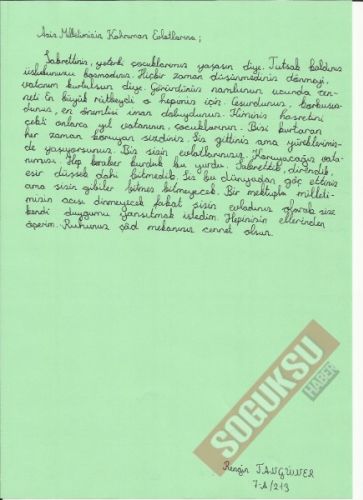 Aziz Milletimizin Kahraman Evlatlarına;
Sabrettiniz, yeterki çocuklarımız yaşasın diye. Tutsak kaldınız
üslubunuzu bozmadınız. Hiçbir zaman düşünmediniz dönmeyi,
vatanım kurtulsun diye. Görürdünüz namlunun ucunda cen-
neti. En büyük rütbeydi o hepiniz için. Cesurdunuz, korkusuz-
dunuz, en önemlisi iman doluydunuz. Kiminiz hasretini
çekti onlarca yıl vatanının, çocuklarının. Bizi kurtaran
her zaman koruyan sizdiniz. Siz gittiniz ama yüreklerimiz-
de yaşıyorsunuz. Biz sizin evlatlarınızız. Koruyacağız vata-
nımızı. Hep beraber kurduk bu yurdu. Sabrettik, direndik,
esir düşsek dahi bitmedik. Siz bu dünyadan göç ettiniz
ama sizin gibiler bitmez bitmeyecek. Bir mektupla milleti-
mizin acısı dinmeyecek fakat sizin evladınız olarak size
kendi duygumu yansıtmak istedim. Hepinizin ellerinden
öperim. Ruhunuz şad mekanınız cennet olsun.
SOGUKSU
HABER
Rengin TANGÜNER
7-A/213